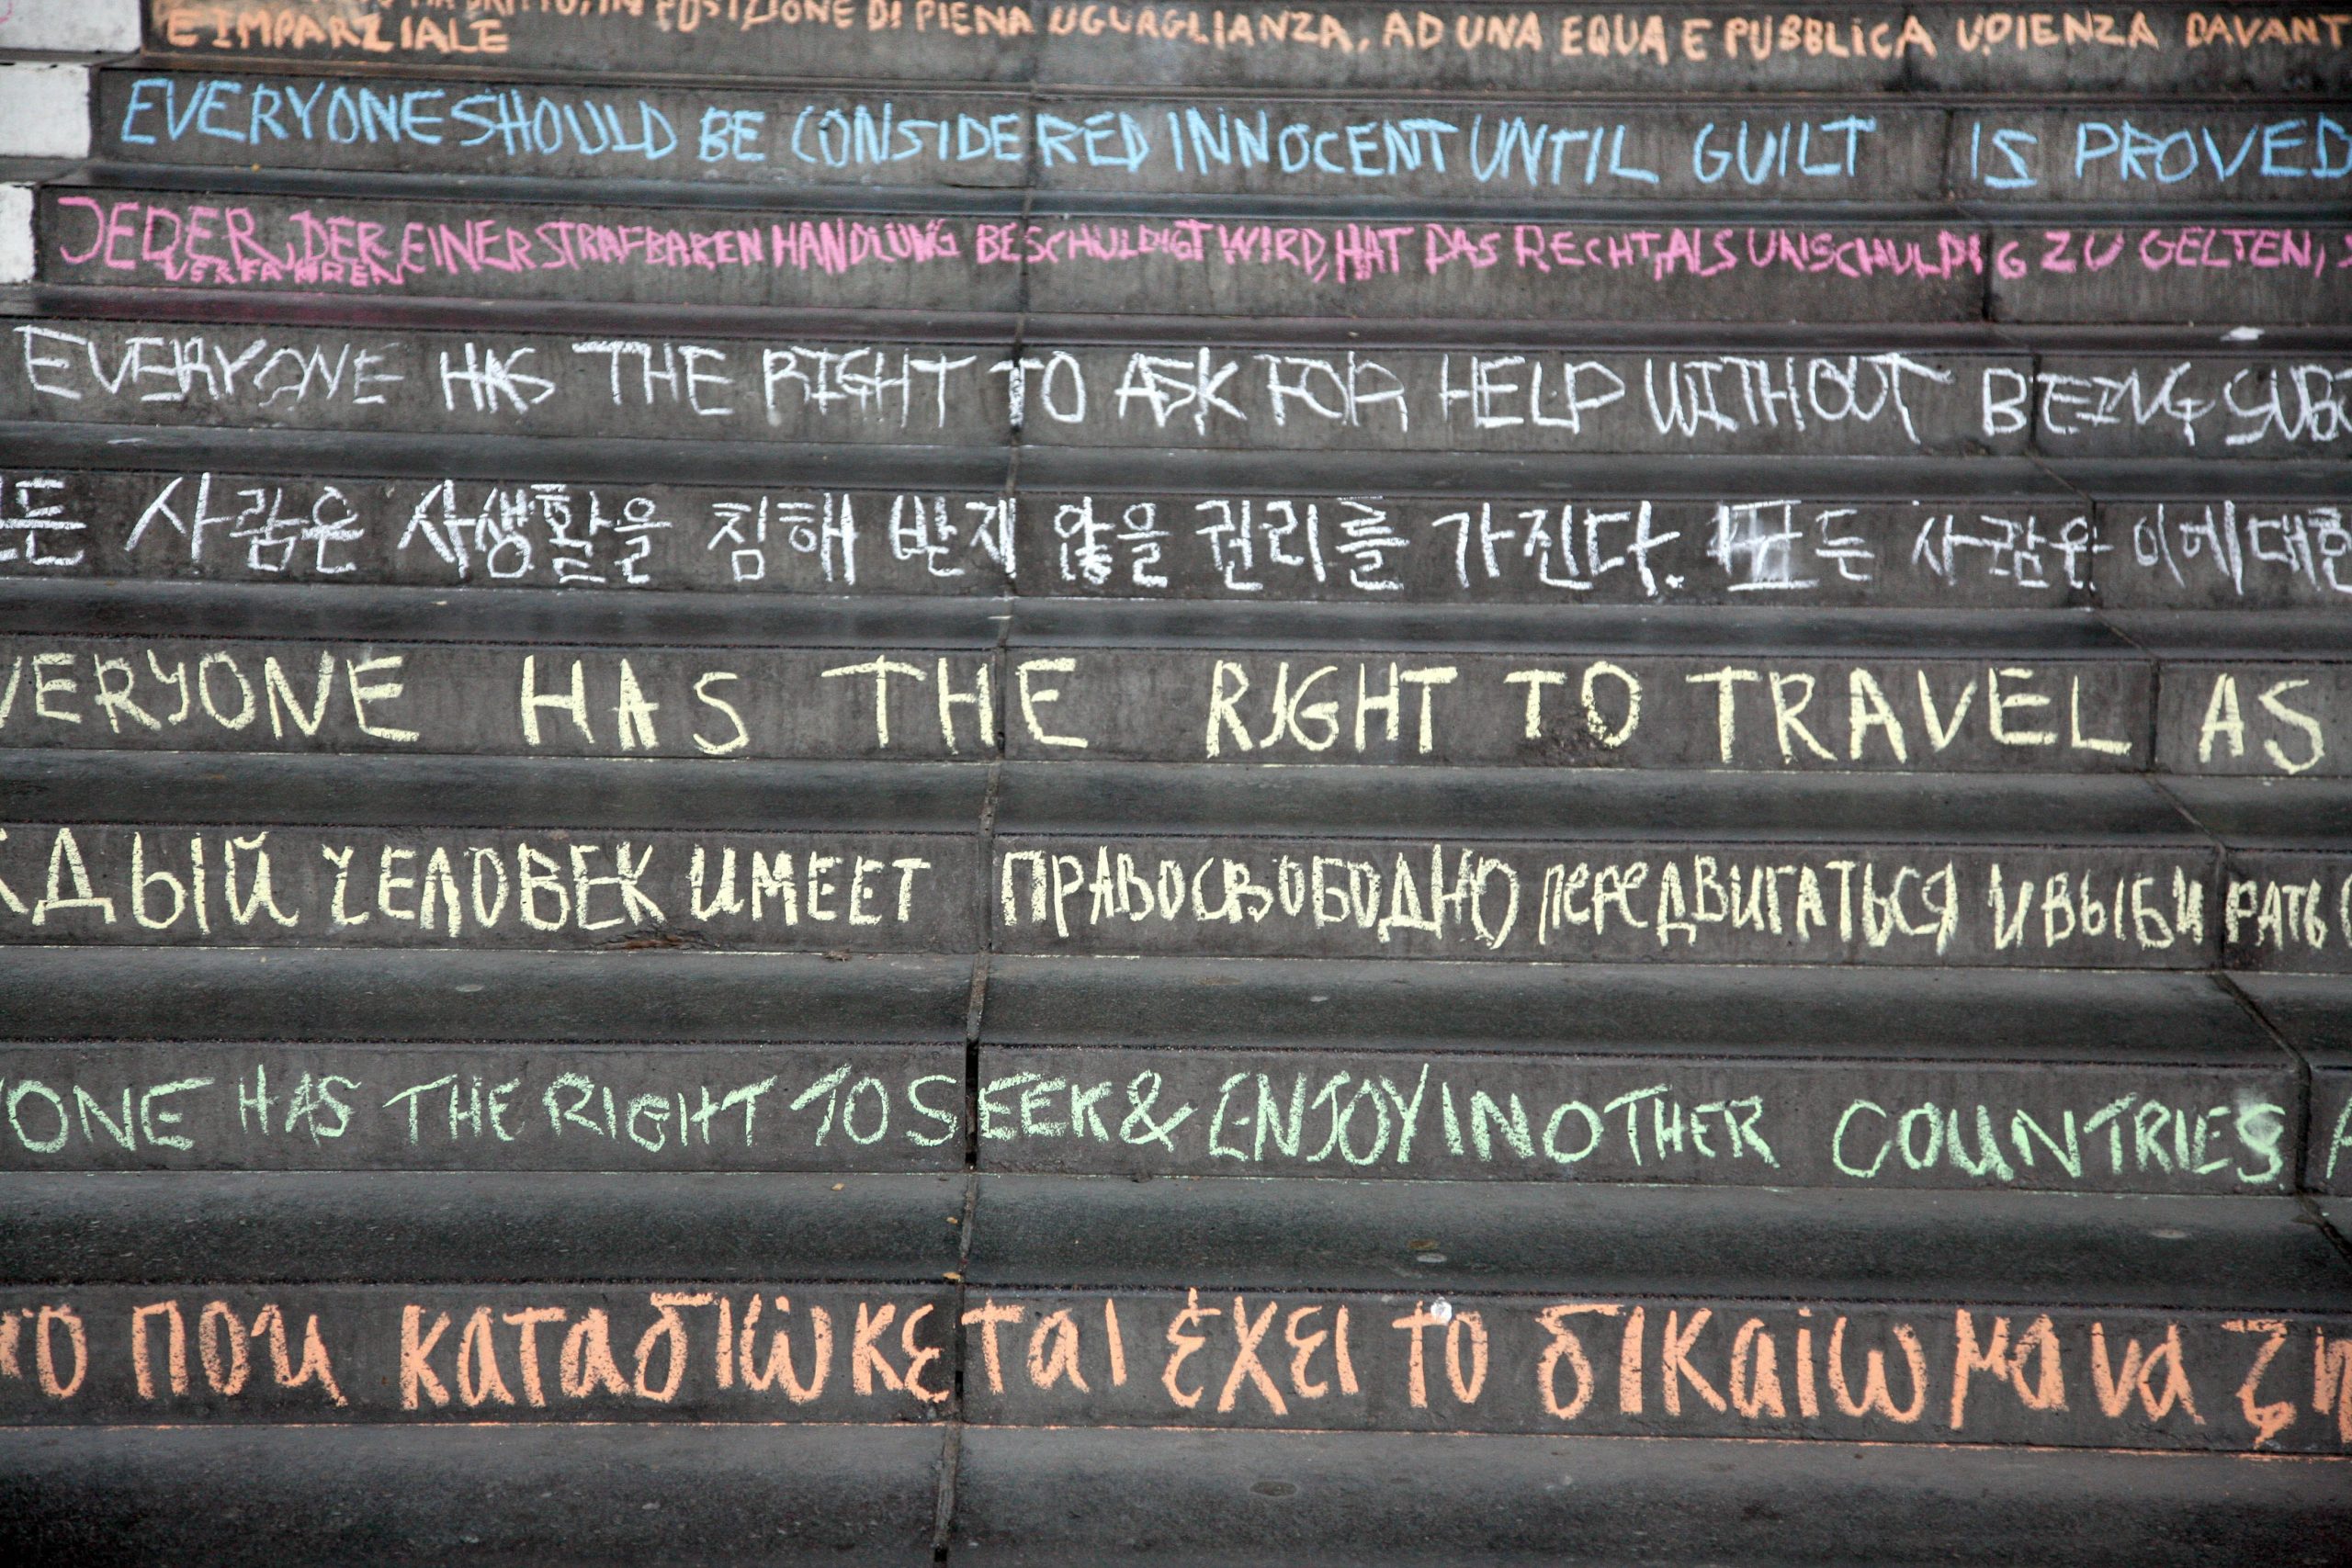 DIRITTO, IN POSIZIONE DI PIENA UGUAGLIANZA, AD UNA EQUA E PUBBLICA UDIENZA DAVANT
E IMPARZIALE
EVERYONE SHOULD BE CONSIDERED INNOCENT UNTIL GUILT IS PROVED
JEDER, DER EINER STRAFBAREN HANDLUNG BESCHULDIGT WIRD, HAT DAS RECHT, ALS UNSCHULDIG ZU GELTEN,
VERFAHREN
EVERYONE HAS THE RIGHT TO ASK FOR HELP WITHOUT BEING SUB
든 사람은 사생활을 침해 받지 않을 권리를 가진다. 모든 사람은 이에 대한
VERYONE HAS THE RIGHT TO TRAVEL AS
ЖДЫЙ ЧЕЛОВЕК ИМЕЕТ ПРАВО СВОБОДНО ПЕРЕДВИГАТЬСЯ И ВЫБИРАТЬ
YONE HAS THE RIGHT TO SEEK & ENJOY IN OTHER COUNTRIES A
που καταδιώκεται έχει το δικαίωμα να ζη